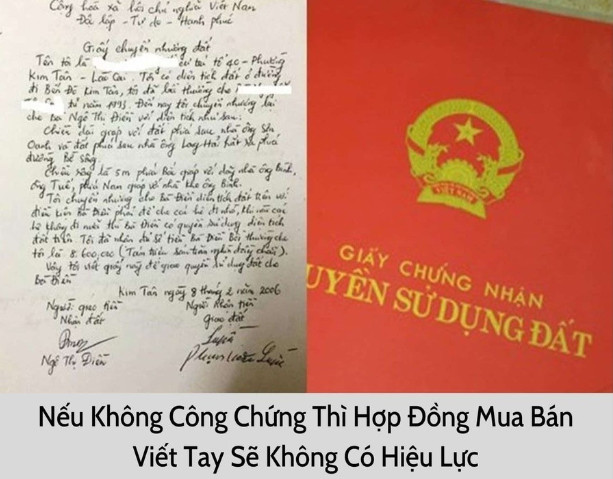 Cộng hòa xã hội chủ nghĩa Việt Nam
Độc lập - Tự do - Hạnh phúc
Giấy chuyển nhường đất
Tên tôi là tại tổ 40 - Phường
Kim Tân - Lào Cai. Tôi có diện tích đất ở đường
đi Bến Đá Kim Tân, tôi đã bồi thường cho
từ năm 1993. Đến nay tôi chuyển nhường lại
cho bà Ngô Thị Điền với diện tích như sau:
Chiều dài giáp với đất phía sau nhà ông Sửu
Oanh và đất phía sau nhà ông phía
đường Bờ sông.
Chiều rộng là 5m phía Bắc giáp với nhà ông Bình,
ông Tuế, phía Nam giáp với nhà ông Bình.
Tôi chuyển nhường cho Bà Điền diện tích đất trên với
điều kiện Bà Điền phải để cho các hộ đi nhờ, khi nào các
hộ không đi nữa thì Bà Điền có quyền sử dụng diện tích
đất trên. Tôi đã nhận đủ số tiền Bà Điền bồi thường cho
tôi là 8.000.000 (Tám triệu đồng chẵn).
Vậy tôi viết giấy này để giao quyền sử dụng đất cho
bà Điền
Kim Tân ngày 8 tháng 2 năm 2006
Người giao tiền Người nhận tiền
Nhận đất Giao đất
Ngô Thị Điền
GIẤY CHỨNG NHẬN
UYỀN SỬ DỤNG ĐẤT
VIỆT NAM
Nếu Không Công Chứng Thì Hợp Đồng Mua Bán
Viết Tay Sẽ Không Có Hiệu Lực